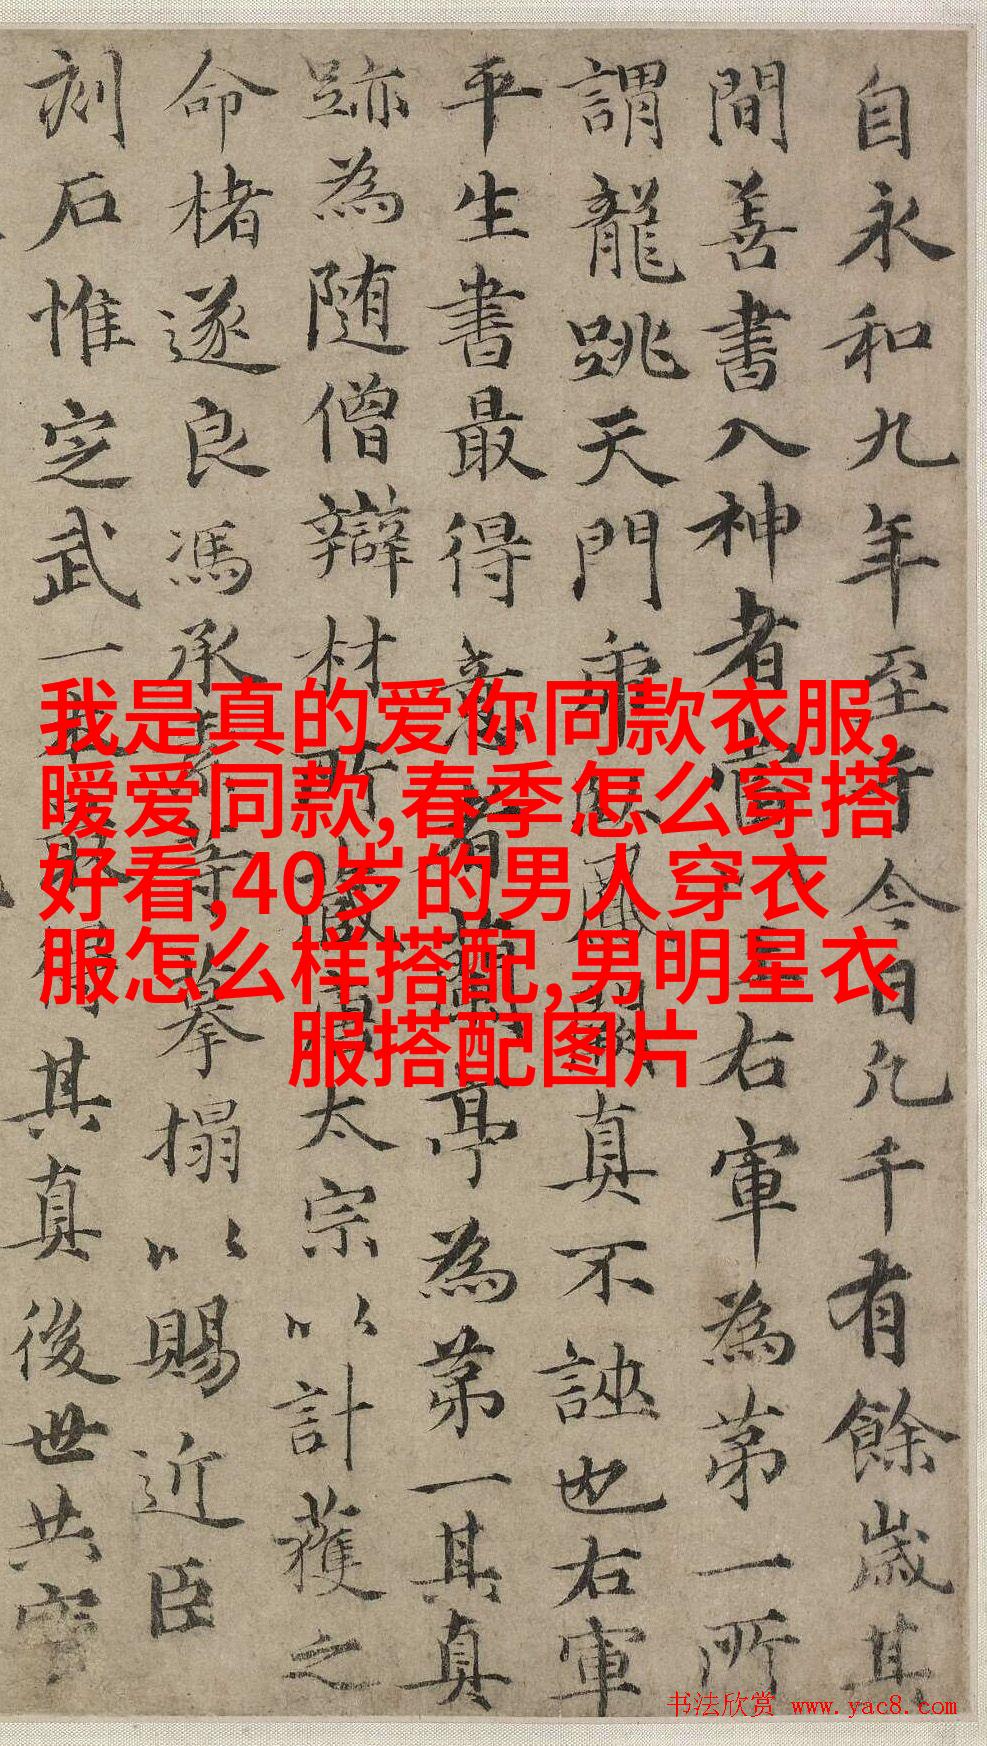 自永和九年至於今日凡千有餘歲其
間善書入神者當以王右軍為第一所
謂龍跳天門虎卧鳳閣真不誣也右軍
平生書最得意者蘭亭為第一其真
跡為随僧辯材所藏唐太宗以計獲之
命楮遂良馮承素等摹搨以賜近臣
刻石惟定武一本最得其真後世共寳
我是真的爱你同款衣服,
暧爱同款,春季怎么穿搭
好看,40岁的男人穿衣
服怎么样搭配,男明星衣
服搭配图片
书法欣赏 www.yac8.com